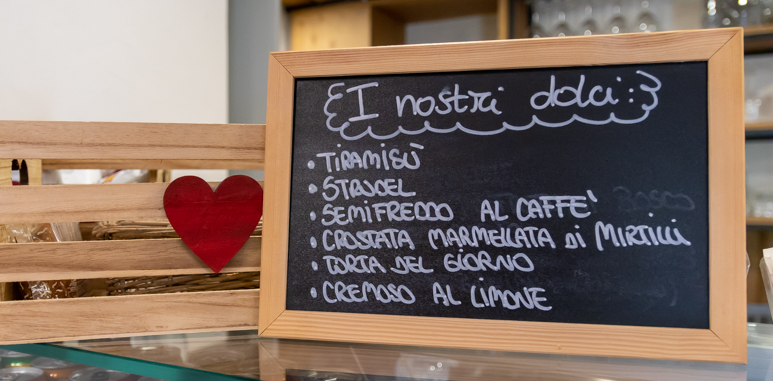 I nostri dolci:
• TIRAMISÙ
• STRUDEL
• SEMIFREDDO AL CAFFE'
• CROSTATA MARMELLATA di MIRTILLI
• TORTA DEL GIORNO
• CREMOSO AL LIMONE